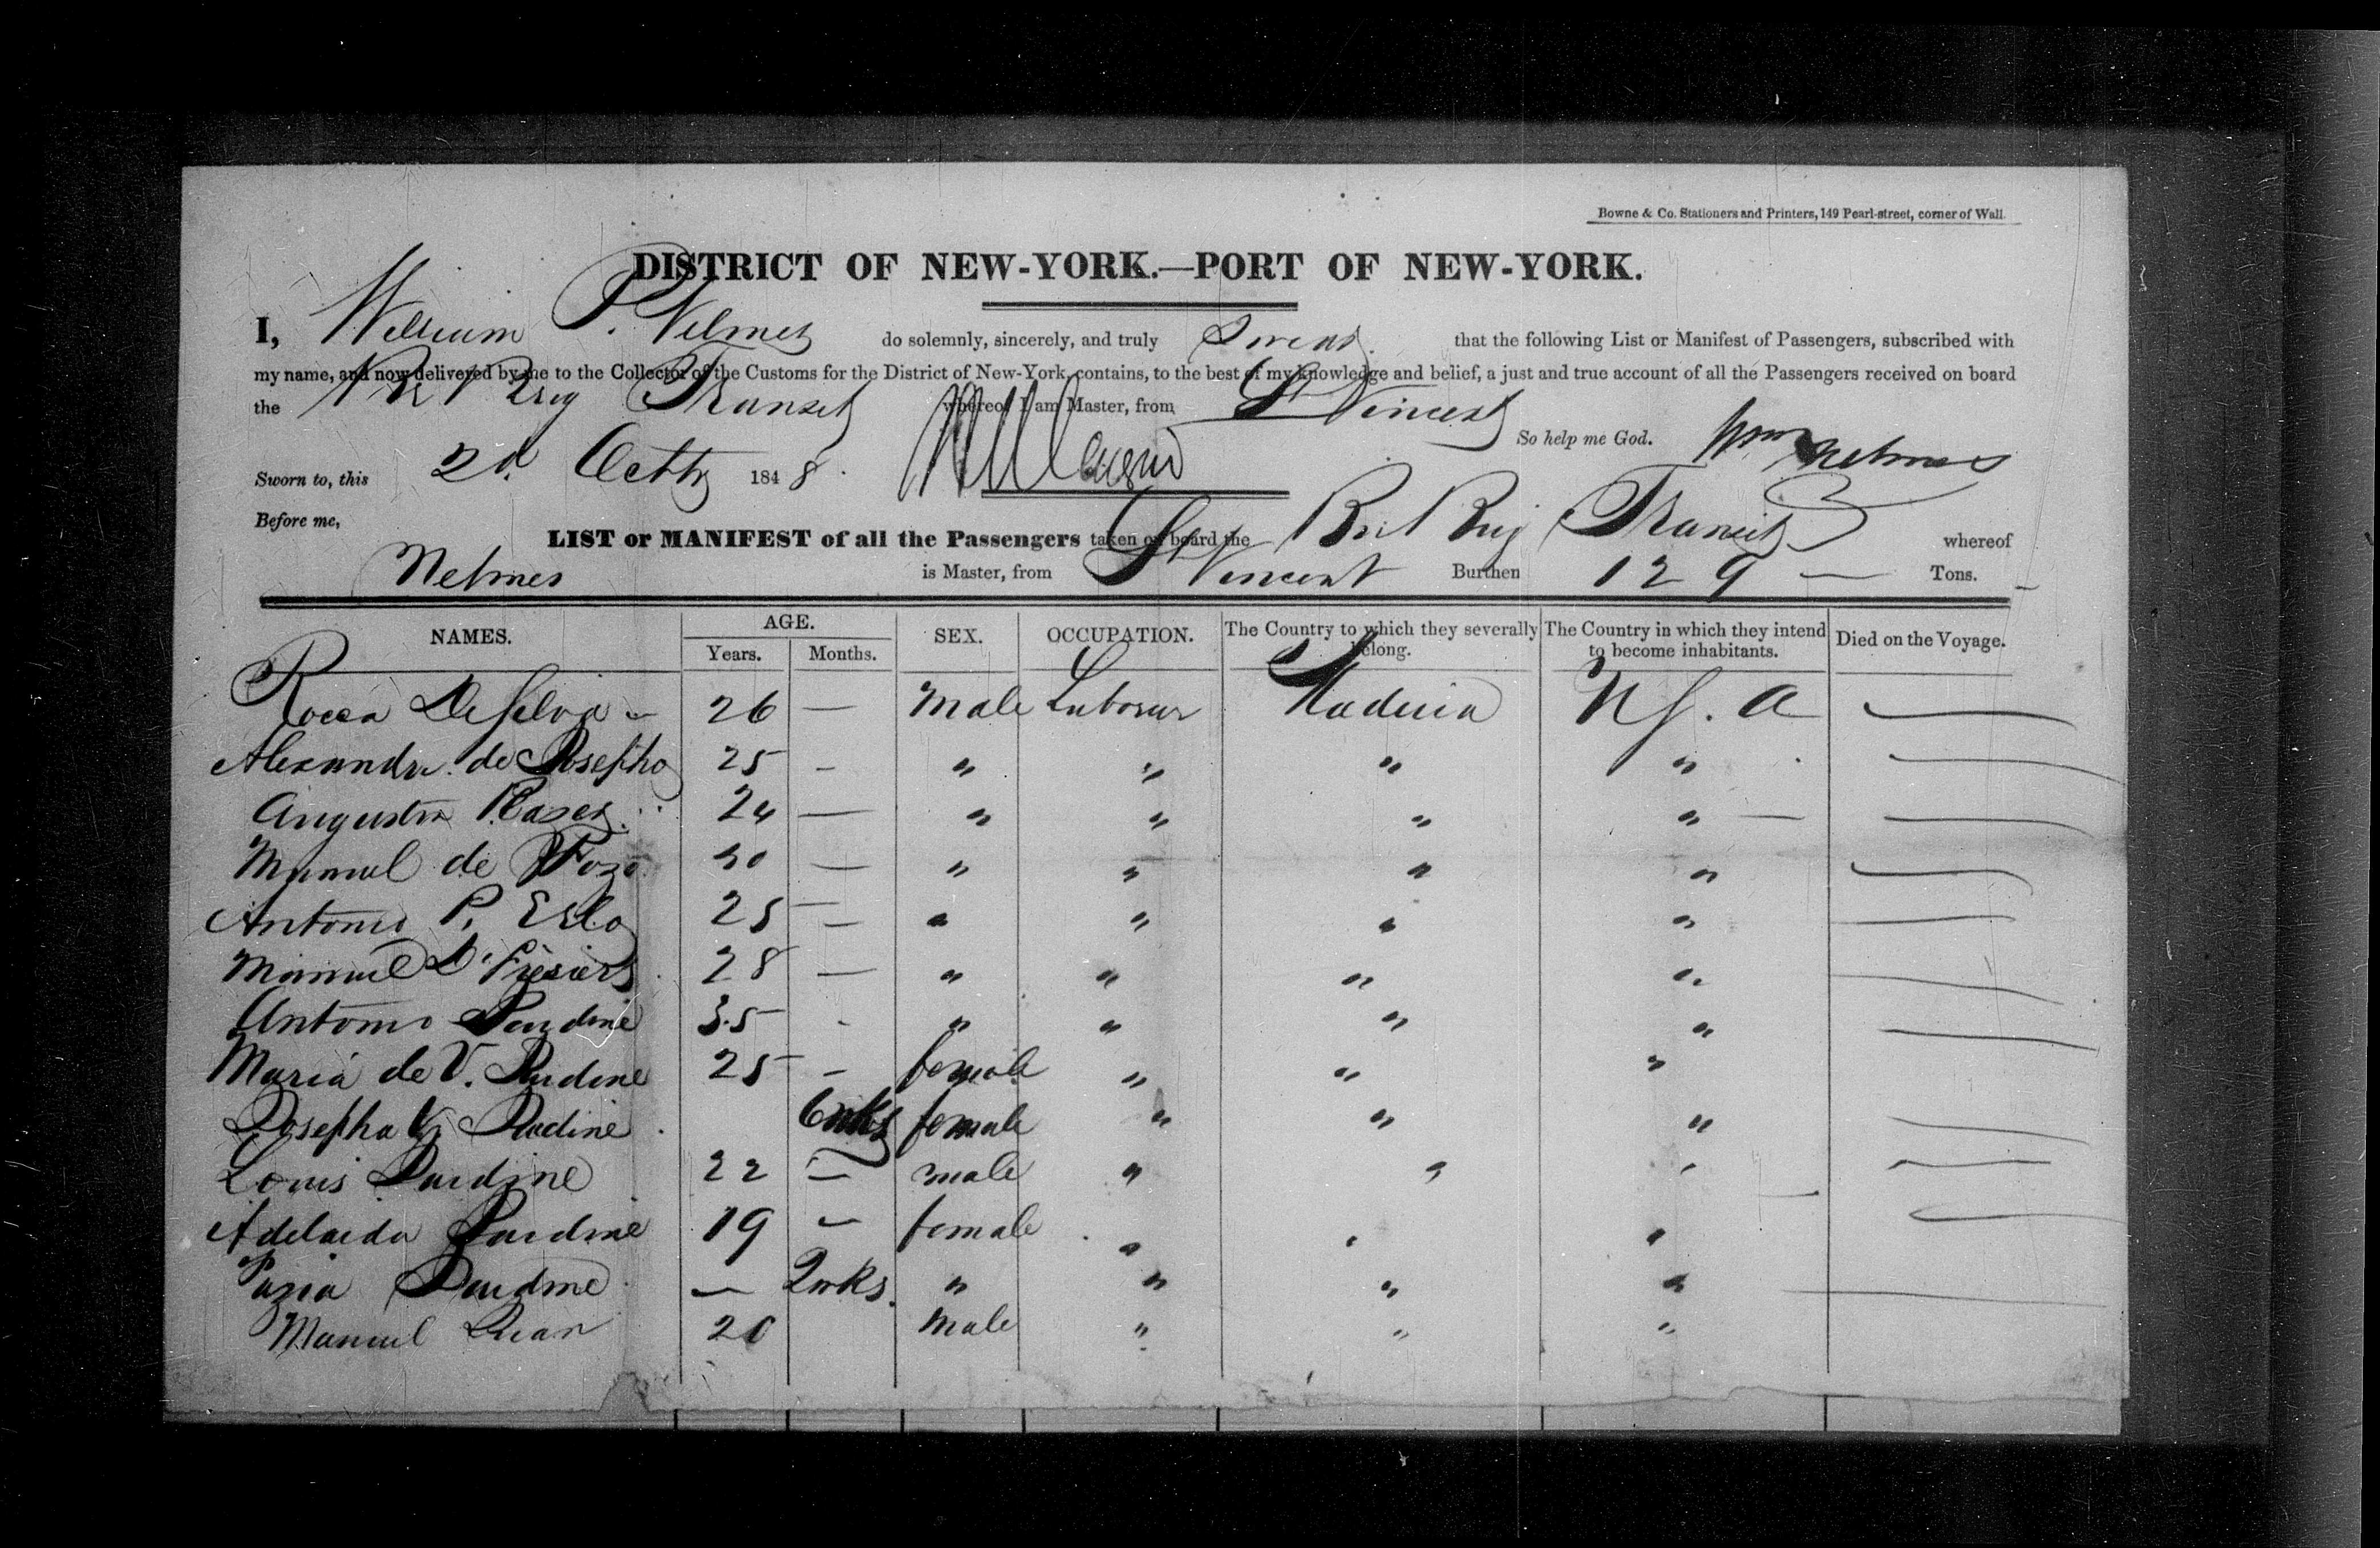 Bowne & Co. Stationers and Printers, 149 Pearl-street, corner of Wall.
DISTRICT OF NEW-YORK.—PORT OF NEW-YORK.
I, William P. Nelmes do solemnly, sincerely, and truly swear that the following List or Manifest of Passengers, subscribed with
my name, and now delivered by me to the Collector of the Customs for the District of New-York, contains, to the best of my knowledge and belief, a just and true account of all the Passengers received on board
the Brit Brig Transit whereof I am Master, from St Vincent
So help me God. Wm Nelmes
Sworn to, this 2d. Octr 1848.
Before me,
LIST or MANIFEST of all the Passengers taken on board the Brit Brig Transit whereof
Nelmes is Master, from St Vincent Burthen 129 — Tons.
NAMES. AGE. SEX. OCCUPATION. The Country to which they severally belong. The Country in which they intend to become inhabitants. Died on the Voyage.
Years. Months.
Rocca DeSelva 26 — male Laborer Maderia U S. A —
Alexandre de Josepho 25 — " " " " —
Augustin 24 — " " " " —
Manuel de 30 — " " " " —
Antonio P. 25 — " " " " —
Manuel D. 28 — " " " " —
Antonio Jardine 35 - " " " " —
Maria de V. Jardine 25 — female " " "
Josepha V. Jardine 6 wks female " " " —
Louis Jardine 22 — male " " " —
Adelaida Jardine 19 — female " " " —
Jardine — 2 wks. " " " " —
Manuel Juan 20 male " " "